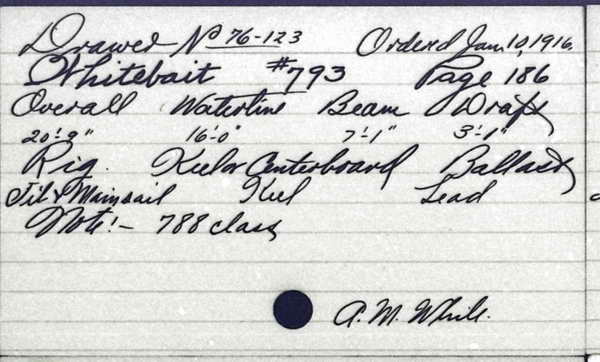 Drawer No 76-123 Ordered Jan. 10, 1916.
Whitebait #793 Page 186
Overall Waterline Beam Draft
20'-9" 16'-0" 7'-1" 3'-1"
Rig. Keel or Centerboard Ballast
Jib & Mainsail Keel Lead
Note:- 788 class
A. M. White.